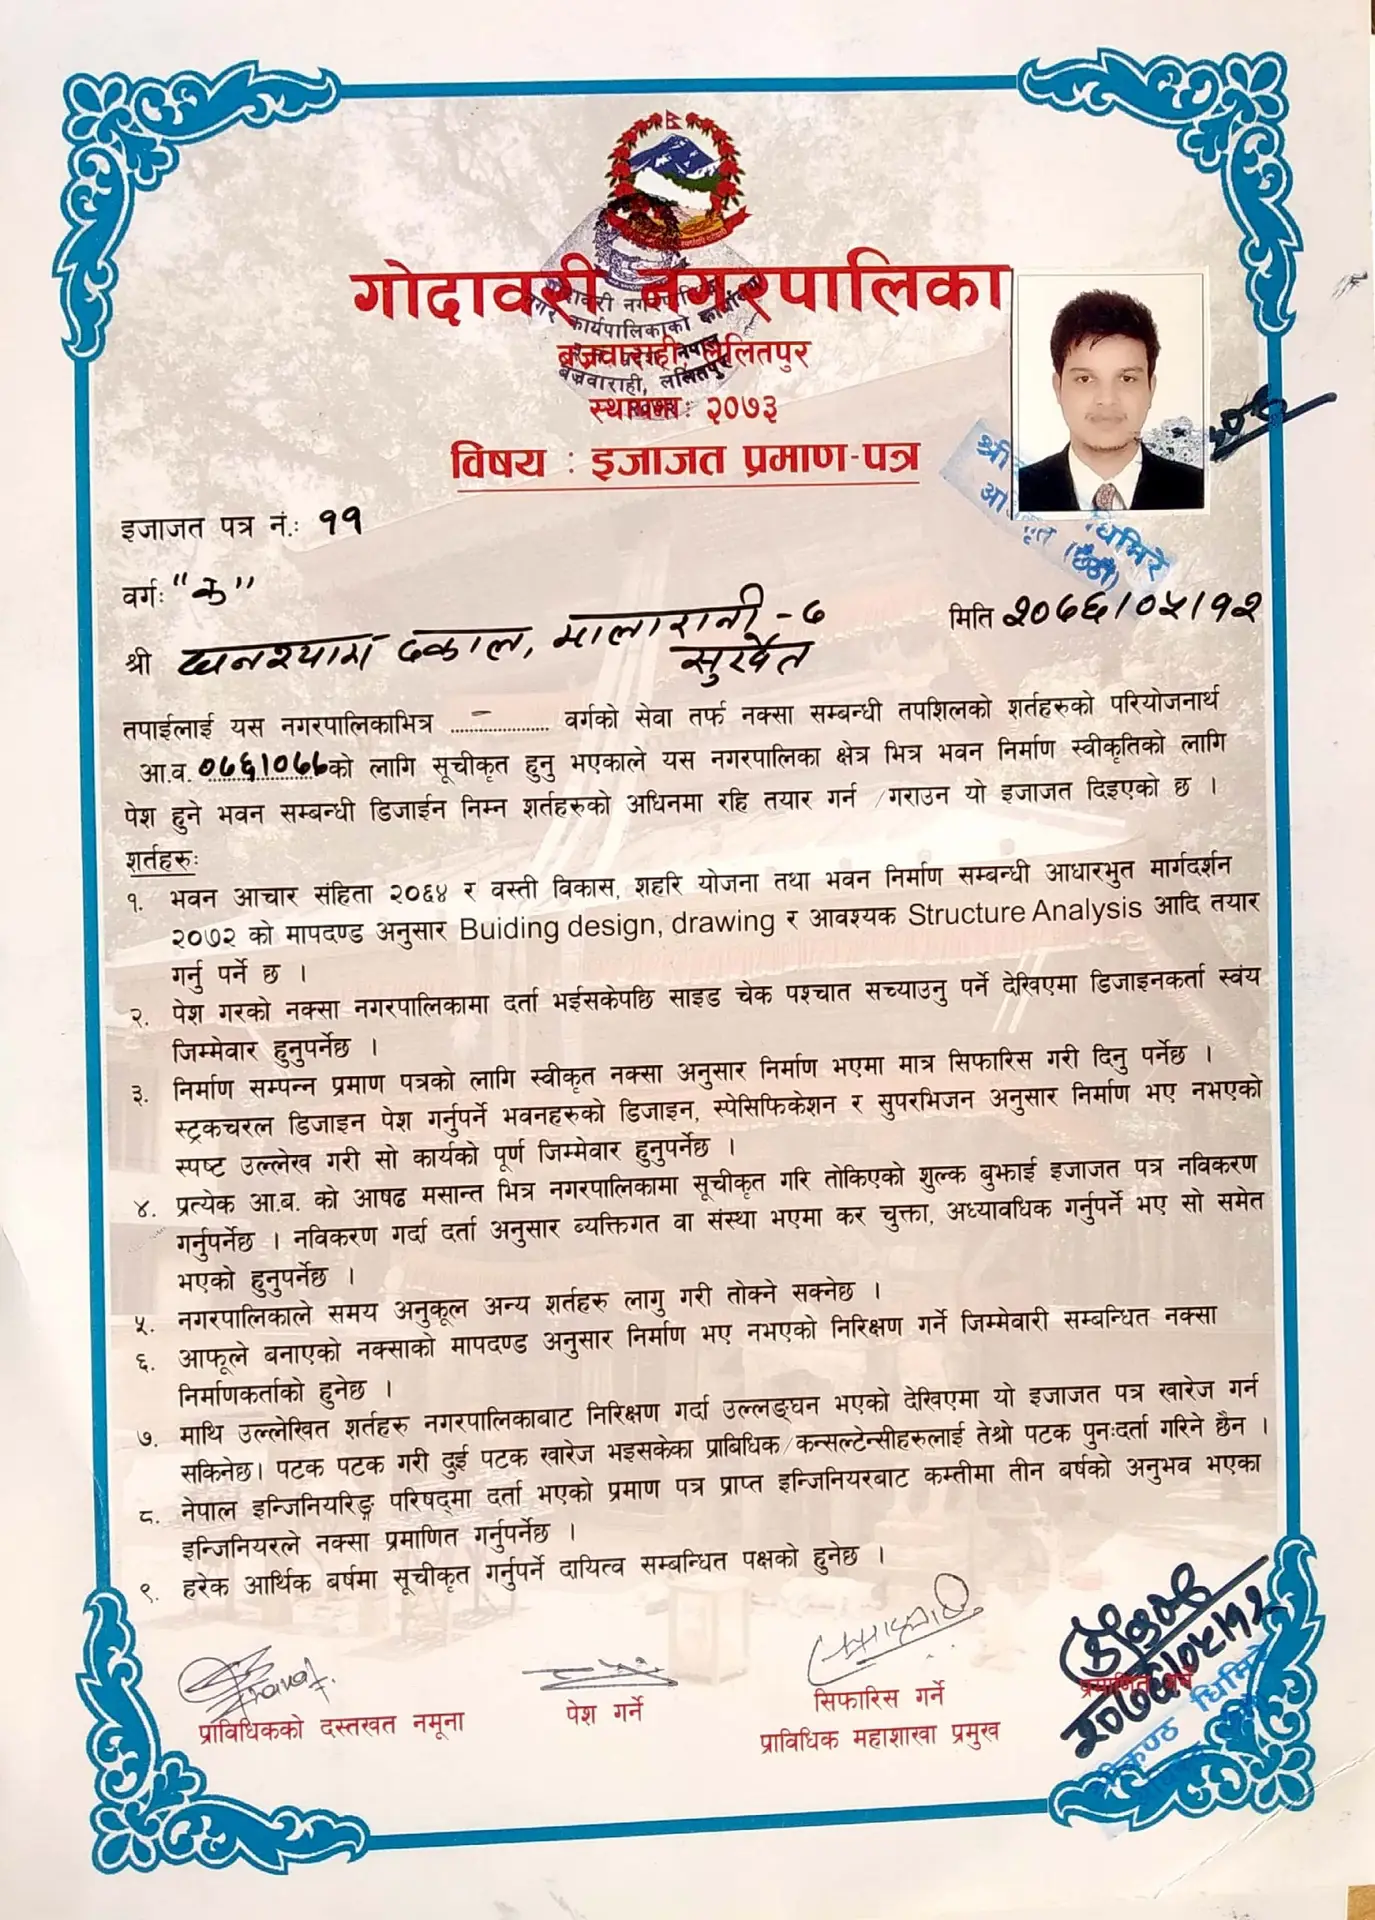 गोदावरी नगरपालिका
बज्रवाराही, ललितपुर
स्थापना: २०७३
गोदावरी नगरपालिका
नगर कार्यपालिकाको कार्यालय
बज्रवाराही, ललितपुर
विषय : इजाजत प्रमाण-पत्र
इजाजत पत्र नं.: ११
वर्ग: "क"
मिति २०७६/०५/१२
श्री घनश्याम ढकाल, मालारानी - ७
सुर्खेत
तपाईलाई यस नगरपालिकाभित्र .................... वर्गको सेवा तर्फ नक्सा सम्बन्धी तपशिलको शर्तहरुको परियोजनार्थ
आ.व. ०७६/०७७ को लागि सूचीकृत हुनु भएकाले यस नगरपालिका क्षेत्र भित्र भवन निर्माण स्वीकृतिको लागि
पेश हुने भवन सम्बन्धी डिजाईन निम्न शर्तहरुको अधिनमा रहि तयार गर्न /गराउन यो इजाजत दिइएको छ ।
शर्तहरु:
१. भवन आचार संहिता २०६४ र वस्ती विकास, शहरि योजना तथा भवन निर्माण सम्बन्धी आधारभुत मार्गदर्शन
२०७२ को मापदण्ड अनुसार Buiding design, drawing र आवश्यक Structure Analysis आदि तयार
गर्नु पर्ने छ ।
२. पेश गरको नक्सा नगरपालिकामा दर्ता भईसकेपछि साइड चेक पश्चात सच्याउनु पर्ने देखिएमा डिजाइनकर्ता स्वंय
जिम्मेवार हुनुपर्नेछ ।
३. निर्माण सम्पन्न प्रमाण पत्रको लागि स्वीकृत नक्सा अनुसार निर्माण भएमा मात्र सिफारिस गरी दिनु पर्नेछ ।
स्ट्रकचरल डिजाइन पेश गर्नुपर्ने भवनहरुको डिजाइन, स्पेसिफिकेशन र सुपरभिजन अनुसार निर्माण भए नभएको
स्पष्ट उल्लेख गरी सो कार्यको पूर्ण जिम्मेवार हुनुपर्नेछ ।
४. प्रत्येक आ.ब. को आषढ मसान्त भित्र नगरपालिकामा सूचीकृत गरि तोकिएको शुल्क बुझाई इजाजत पत्र नविकरण
गर्नुपर्नेछ । नविकरण गर्दा दर्ता अनुसार व्यक्तिगत वा संस्था भएमा कर चुक्ता, अध्यावधिक गर्नुपर्ने भए सो समेत
भएको हुनुपर्नेछ ।
५. नगरपालिकाले समय अनुकूल अन्य शर्तहरु लागु गरी तोक्ने सक्नेछ ।
६. आफूले बनाएको नक्साको मापदण्ड अनुसार निर्माण भए नभएको निरिक्षण गर्ने जिम्मेवारी सम्बन्धित नक्सा
निर्माणकर्ताको हुनेछ ।
७. माथि उल्लेखित शर्तहरु नगरपालिकाबाट निरिक्षण गर्दा उल्लङ्घन भएको देखिएमा यो इजाजत पत्र खारेज गर्न
सकिनेछ। पटक पटक गरी दुई पटक खारेज भइसकेका प्राबिधिक/कन्सल्टेन्सीहरुलाई तेश्रो पटक पुन:दर्ता गरिने छैन ।
८. नेपाल इन्जिनियरिङ्ग परिषद्‌मा दर्ता भएको प्रमाण पत्र प्राप्त इन्जिनियरबाट कम्तीमा तीन बर्षको अनुभव भएका
इन्जिनियरले नक्सा प्रमाणित गर्नुपर्नेछ ।
९. हरेक आर्थिक बर्षमा सूचीकृत गर्नुपर्ने दायित्व सम्बन्धित पक्षको हुनेछ ।
प्राविधिकको दस्तखत नमूना
पेश गर्ने
सिफारिस गर्ने
प्राविधिक महाशाखा प्रमुख
प्रमाणित गर्ने
२०७६/०५/१२